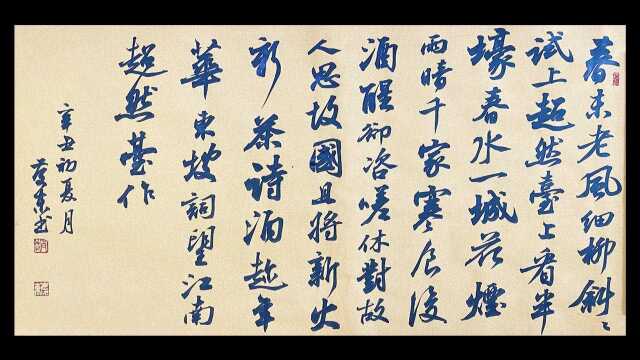 春未老風細柳斜〻
試上超然臺上看半
壕春水一城花煙
雨暗千家寒食後
酒醒卻咨嗟休對故
人思故國且將新火
新茶詩酒趁年
華東坡詞望江南
超然臺作
辛丑初夏月